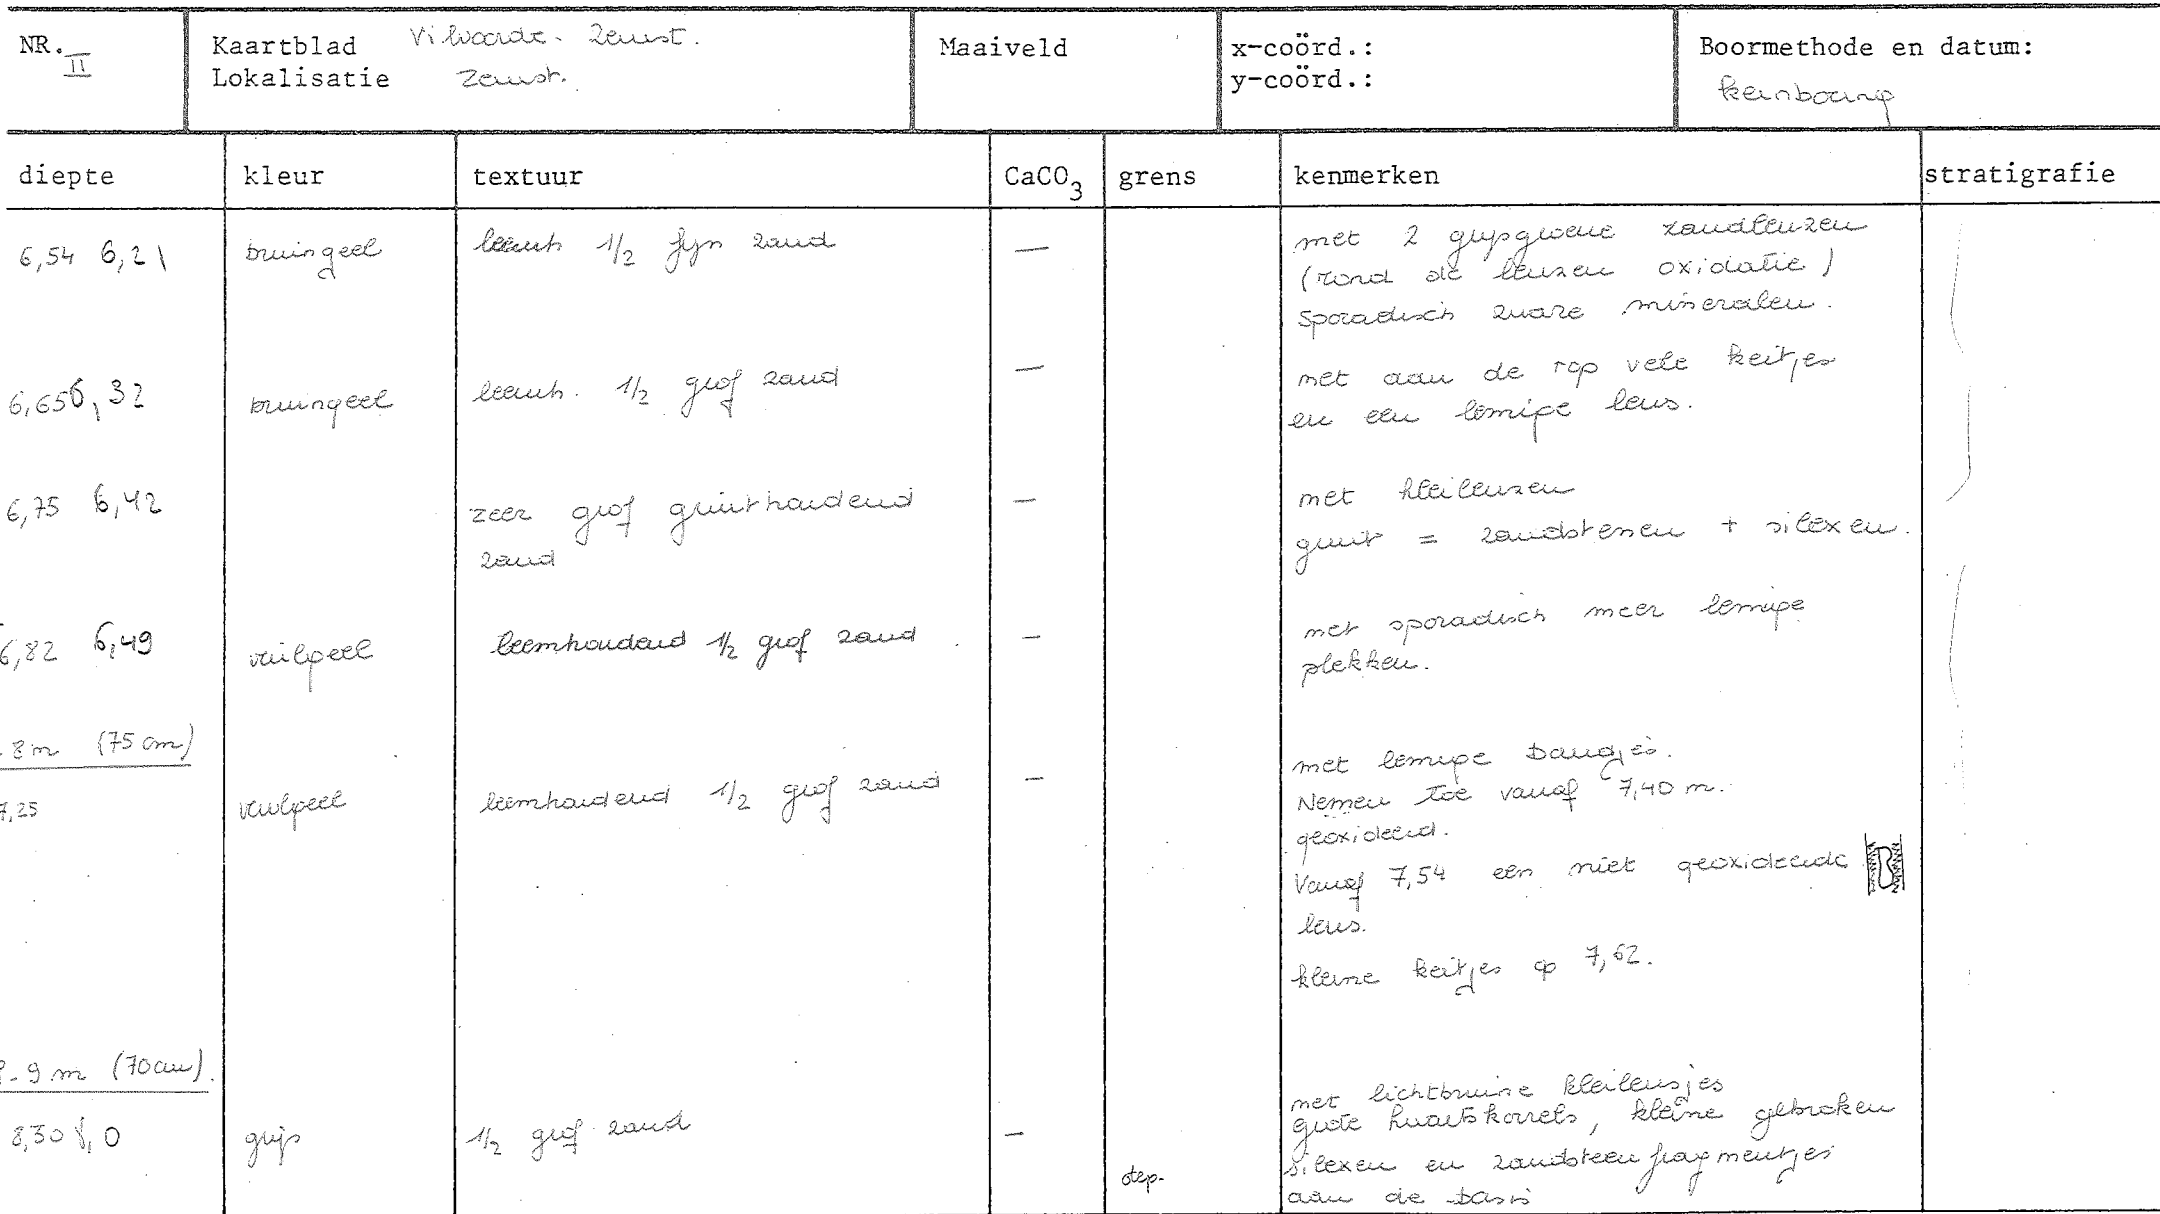 NR. II
Kaartblad Vilvoorde - Zemst.
Lokalisatie Zemst.
Maaiveld
x-coörd.:
y-coörd.:
Boormethode en datum:
kernboring
diepte kleur textuur CaCO3 grens kenmerken stratigrafie
6,54 6,21 bruingeel leemh 1/2 fijn zand — met 2 grijsgroene zandlenzen
(rond de lenzen oxidatie)
Sporadisch zware mineralen.
6,65 6,32 bruingeel leemh. 1/2 grof zand — met aan de top vele keitjes
en een lemige lens.
6,75 6,42 zeer grof grinthoudend — met kleilenzen
zand grint = zandstenen + silexen.
6,82 6,49 vuilgeel leemhoudend 1/2 grof zand. — met sporadisch meer lemige
plekken.
- 8 m (75 cm)
7,25 vuilgeel leemhoudend 1/2 grof zand — met lemige bandjes.
Nemen toe vanaf 7,40 m.
geoxideerd.
Vanaf 7,54 een niet geoxideerde
lens.
kleine keitjes op 7,62.
8 - 9 m (70 cm).
8,30 8,0 grijs 1/2 grof zand — met lichtbruine kleilensjes
grote kwartskorrels, kleine gebroken
silexen en zandsteenfragmentjes
aan de basis